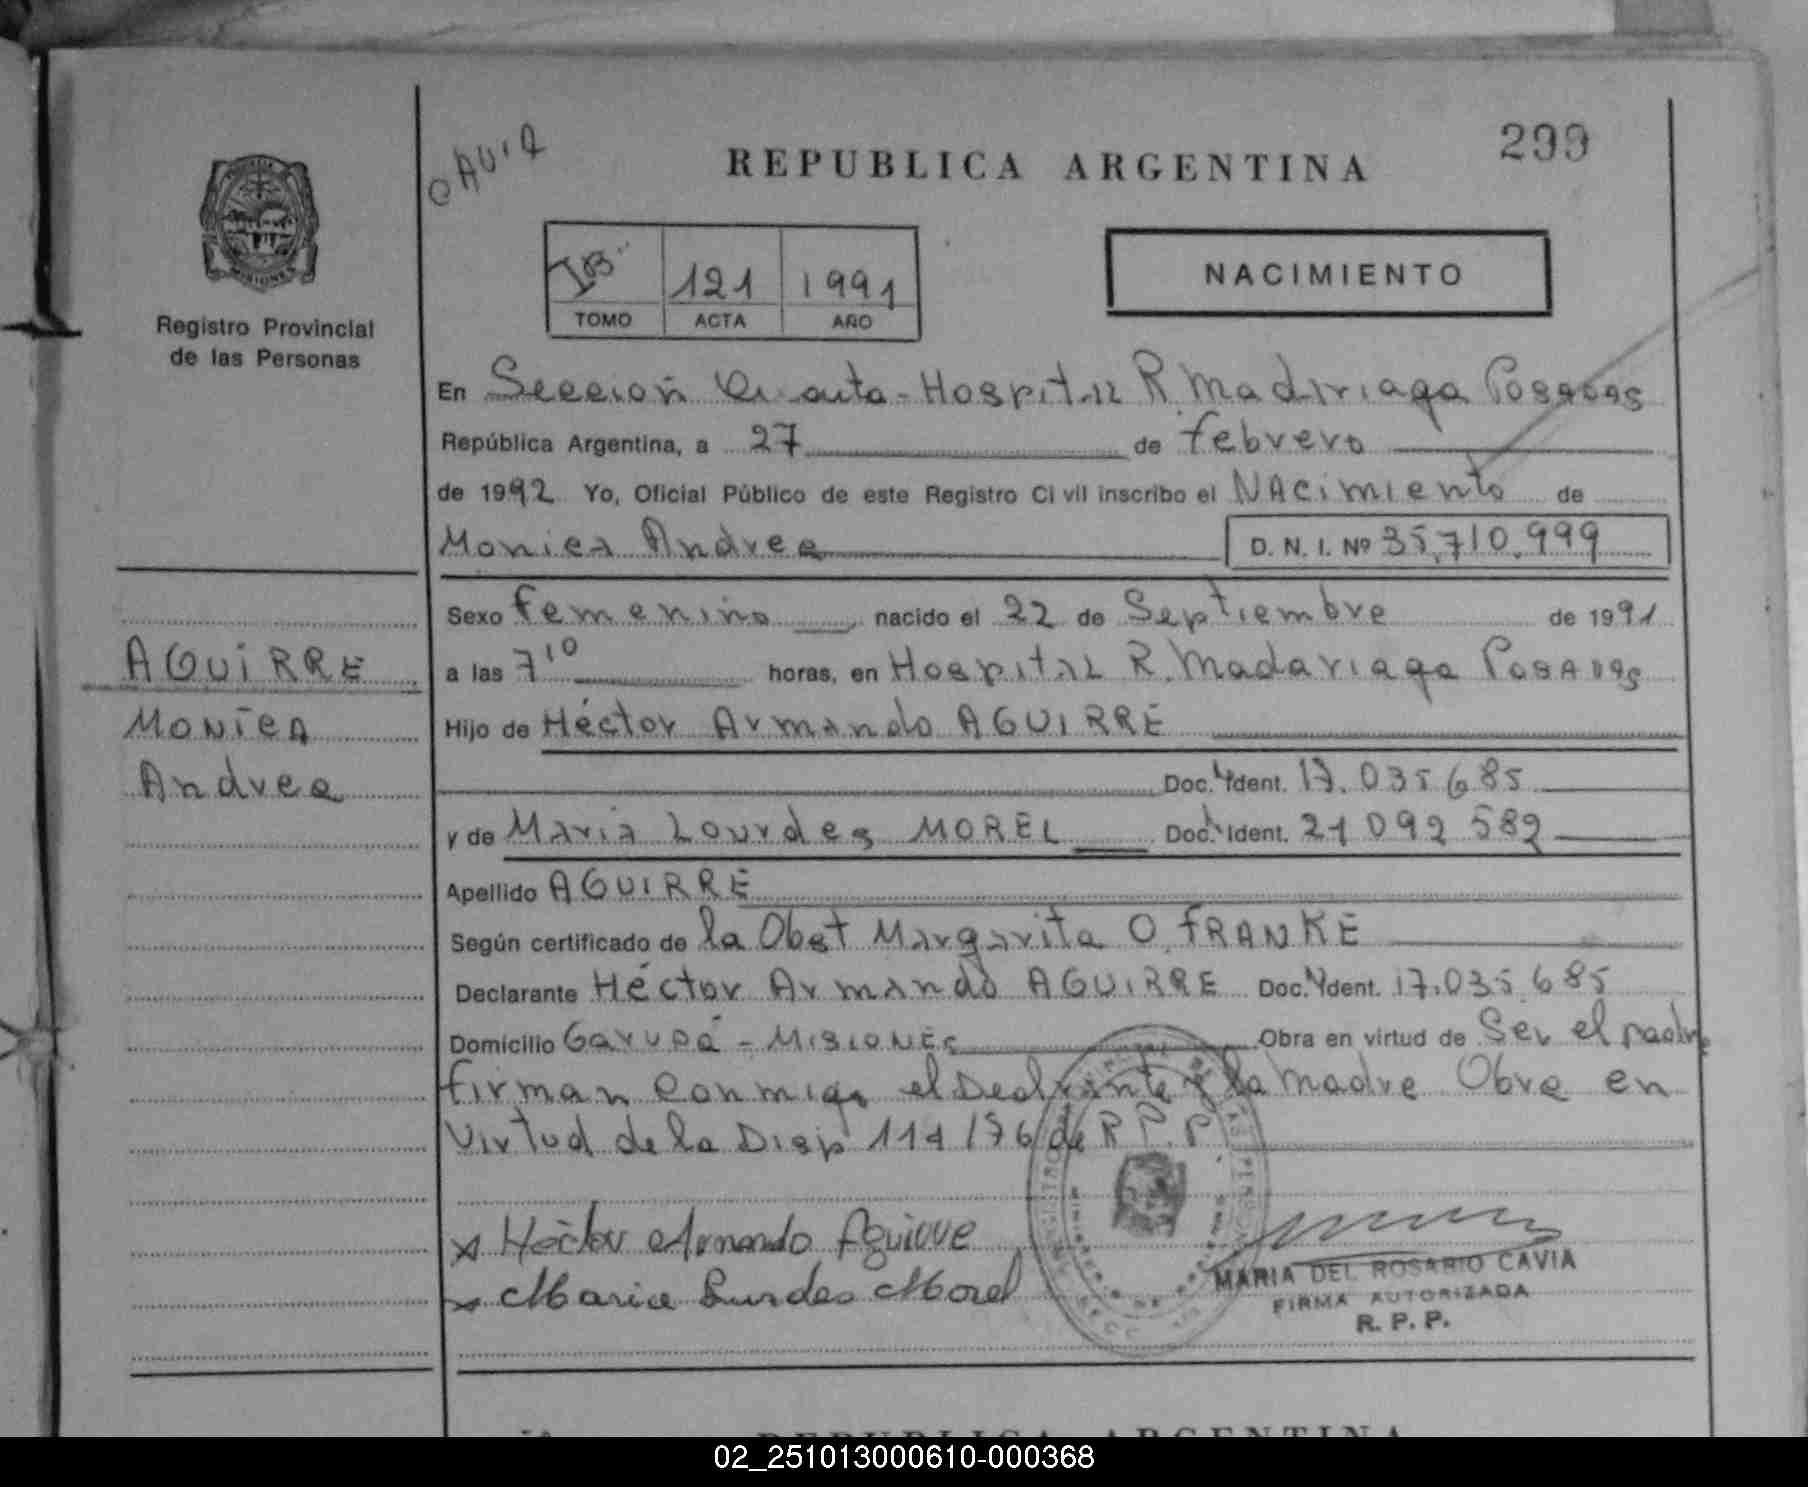 CAVIA
REPUBLICA ARGENTINA
299
MISIONES
Registro Provincial
de las Personas
121 1991
TOMO ACTA AÑO
NACIMIENTO
En Sección Cuarta - Hospital R. Madariaga Posadas
República Argentina, a 27 de febrero
de 1992 Yo, Oficial Público de este Registro Civil inscribo el NAcimiento de
Monica Andrea D. N. I. Nº 35.710.999
Sexo femenino nacido el 22 de Septiembre de 1991
AGUIRRE
Monica
Andrea
a las 7¹⁰ horas, en Hospital R. Madariaga Posadas
Hijo de Héctor Armando AGUIRRE
Doc. Ident. 17.035.685
y de Maria Lourdes MOREL Doc. Ident. 21 092 582
Apellido AGUIRRE
Según certificado de la Obst Margarita O. FRANKE
Declarante Héctor Armando AGUIRRE Doc. Ident. 17.035.685
Domicilio Garupá - Misiones Obra en virtud de Ser el padre
firman conmigo el Declarante y la madre Obra en
Virtud de la Disp 114/76 de R.P.P.
x Héctor Armando Aguirre
x Maria Lurdes Morel
MARIA DEL ROSARIO CAVIA
FIRMA AUTORIZADA
R. P. P.
REPUBLICA ARGENTINA
02_251013000610-000368